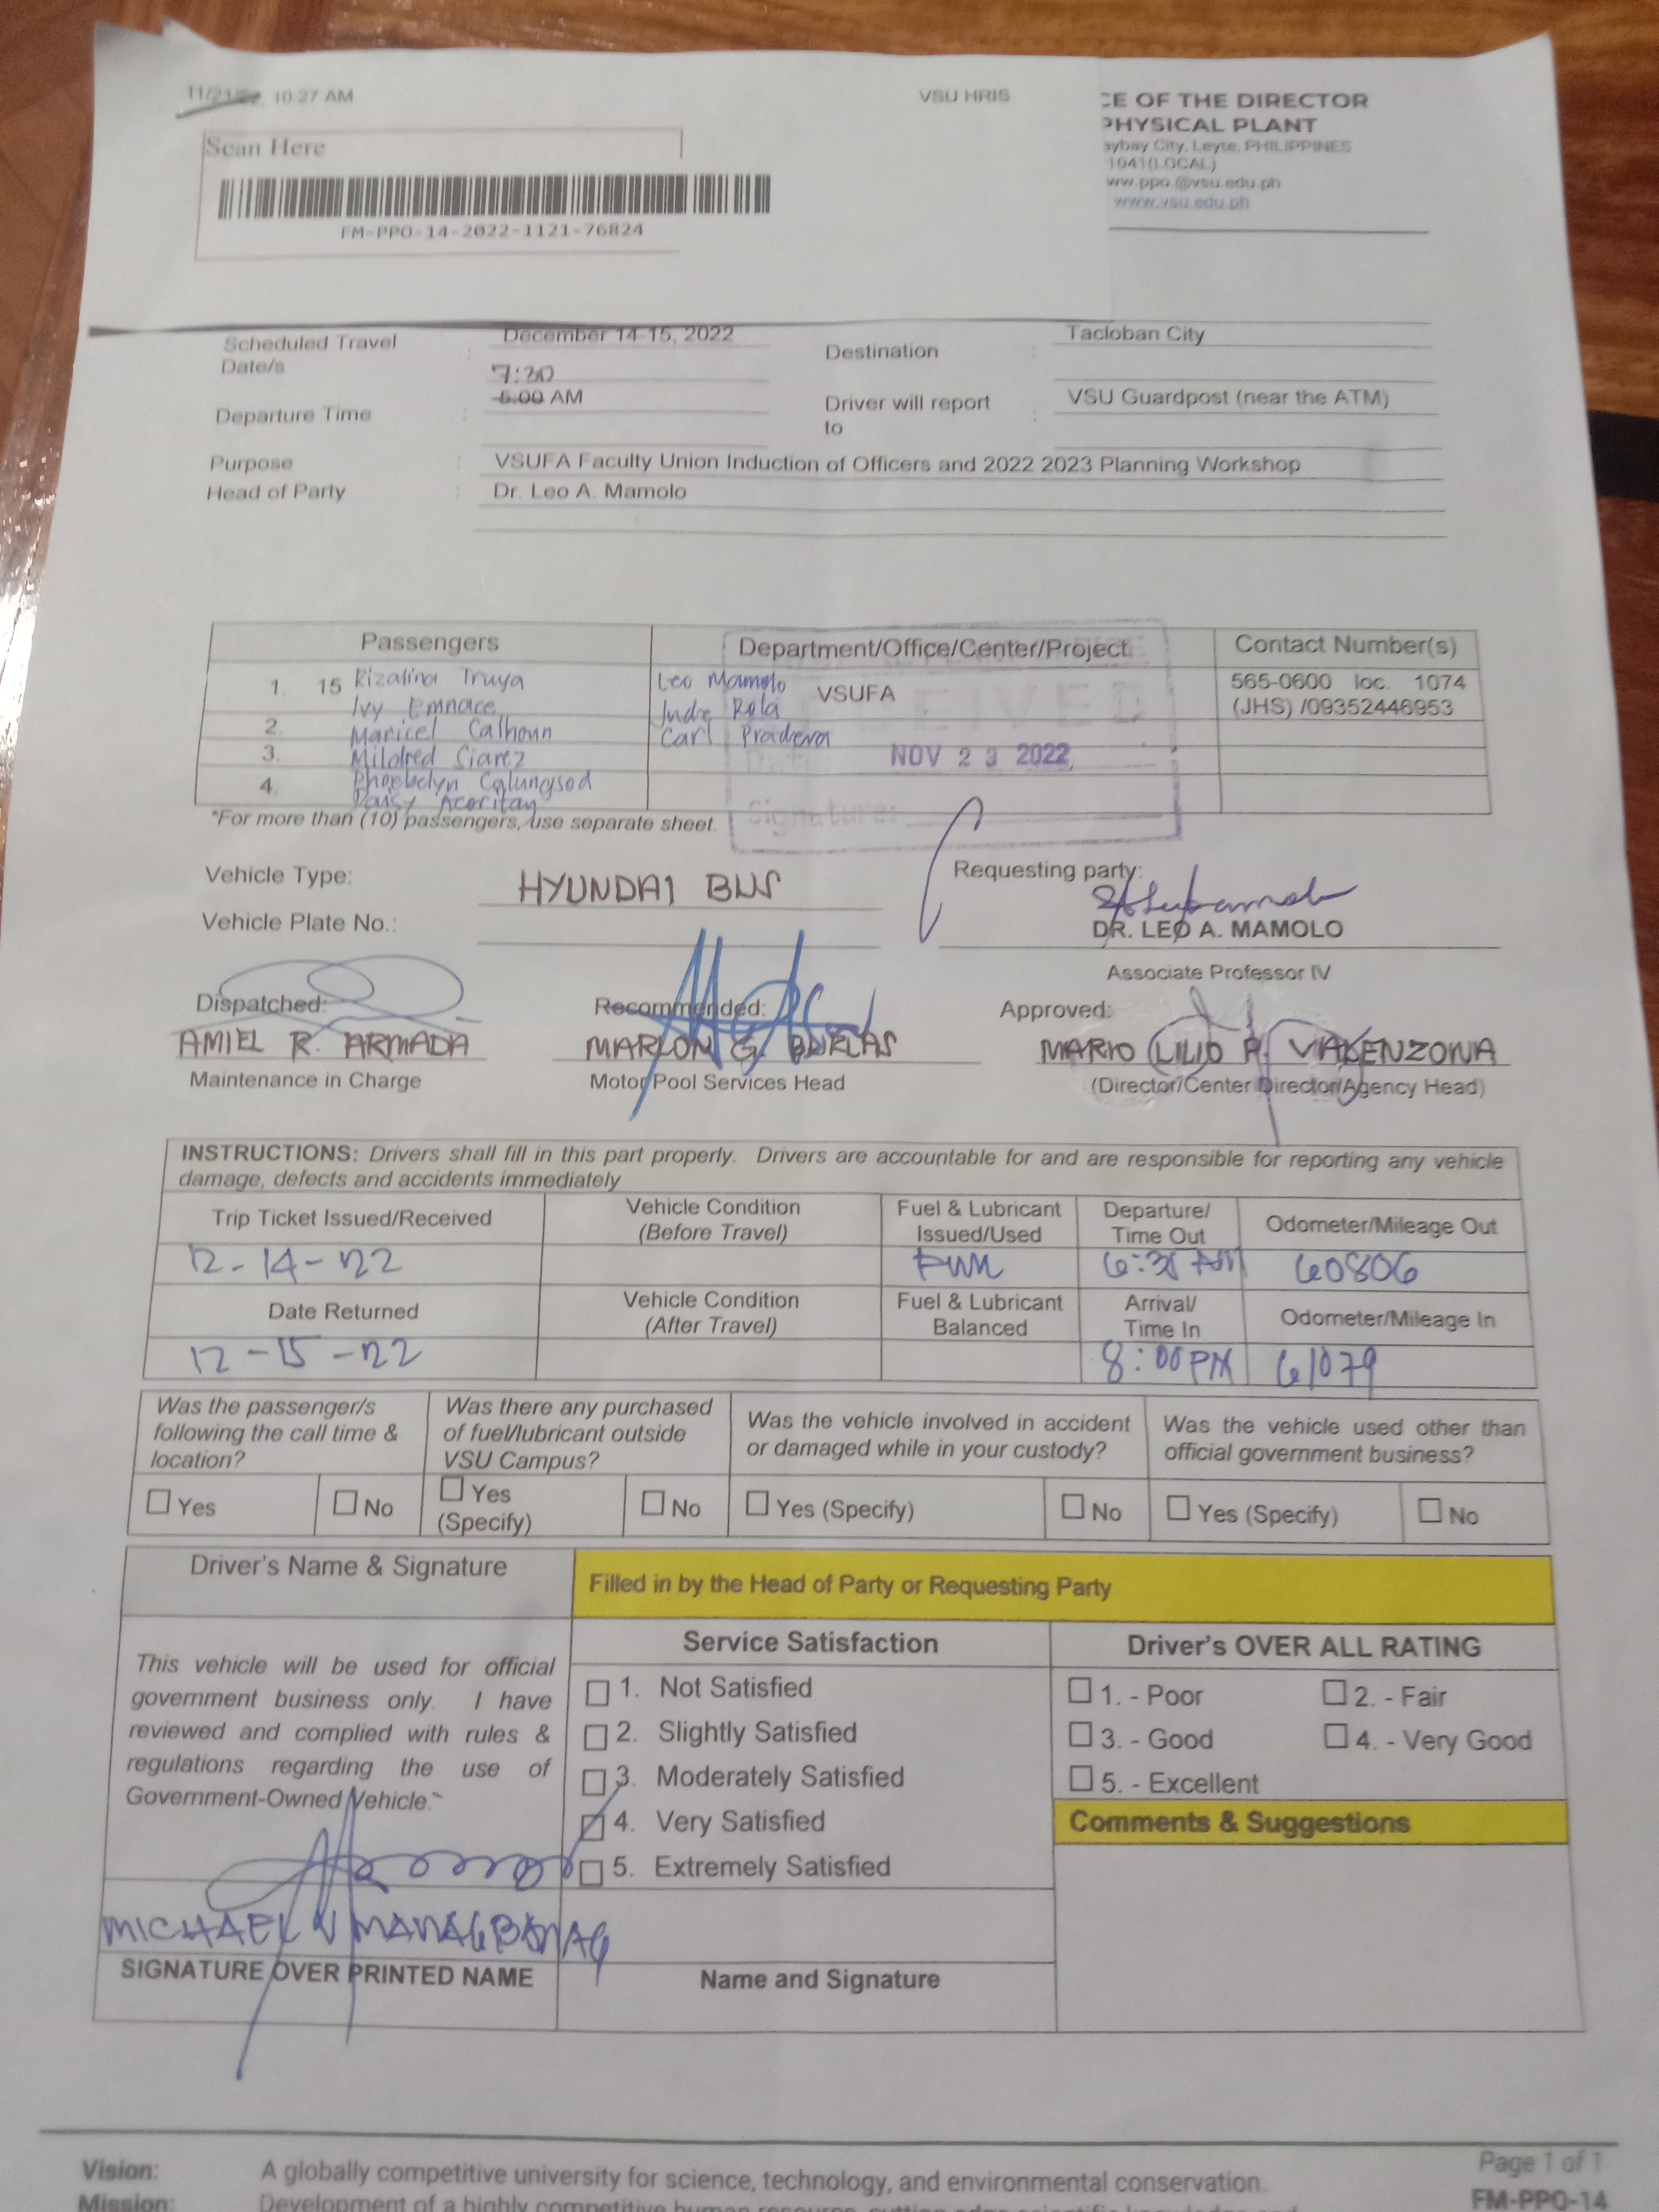 11/21/22, 10:27 AM
VSU HRIS
CE OF THE DIRECTOR
PHYSICAL PLANT
aybay City, Leyte, PHILIPPINES
1041(LOCAL)
ww.ppo.@vsu.edu.ph
www.vsu.edu.ph
Scan Here
FM-PPO-14-2022-1121-76824
Scheduled Travel Date/s : December 14-15, 2022
Destination : Tacloban City
7:30
Departure Time : 5:00 AM
Driver will report to : VSU Guardpost (near the ATM)
Purpose : VSUFA Faculty Union Induction of Officers and 2022 2023 Planning Workshop
Head of Party : Dr. Leo A. Mamolo
Passengers Department/Office/Center/Project Contact Number(s)
1. 15 Rizalina Truya Leo Mamolo VSUFA 565-0600 loc. 1074
Ivy Emnace Jude Rola (JHS) /09352446953
2. Maricel Calhoun Carl Pradera
3. Mildred Siarez
4. Phoebelyn Calungsod
Daisy Acoritay
RECEIVED
NOV 23 2022
Signature:
*For more than (10) passengers, use separate sheet.
Vehicle Type: HYUNDAI BUS
Requesting party:
Vehicle Plate No.:
DR. LEO A. MAMOLO
Associate Professor IV
Dispatched: Recommended: Approved:
AMIEL R. ARMADA MARLON G. BURLAS MARIO LILIO P. VALENZONA
Maintenance in Charge Motor Pool Services Head (Director/Center Director/Agency Head)
INSTRUCTIONS: Drivers shall fill in this part properly. Drivers are accountable for and are responsible for reporting any vehicle
damage, defects and accidents immediately
Trip Ticket Issued/Received Vehicle Condition (Before Travel) Fuel & Lubricant Issued/Used Departure/ Time Out Odometer/Mileage Out
12-14-22 6:35 AM 60806
Date Returned Vehicle Condition (After Travel) Fuel & Lubricant Balanced Arrival/ Time In Odometer/Mileage In
12-15-22 8:00 PM 61079
Was the passenger/s following the call time & location?
Was there any purchased of fuel/lubricant outside VSU Campus?
Was the vehicle involved in accident or damaged while in your custody?
Was the vehicle used other than official government business?
☐ Yes ☐ No ☐ Yes (Specify) ☐ No ☐ Yes (Specify) ☐ No ☐ Yes (Specify) ☐ No
Driver's Name & Signature
Filled in by the Head of Party or Requesting Party
This vehicle will be used for official
government business only. I have
reviewed and complied with rules &
regulations regarding the use of
Government-Owned Vehicle.
Service Satisfaction
1. Not Satisfied
2. Slightly Satisfied
3. Moderately Satisfied
4. Very Satisfied
5. Extremely Satisfied
Driver's OVER ALL RATING
1. - Poor 2. - Fair
3. - Good 4. - Very Good
5. - Excellent
Comments & Suggestions
MICHAEL V MANAGBANAG
SIGNATURE OVER PRINTED NAME
Name and Signature
Vision: A globally competitive university for science, technology, and environmental conservation.
Mission: Development of a highly competitive human resource, cutting-edge scientific knowledge and
Page 1 of 1
FM-PPO-14